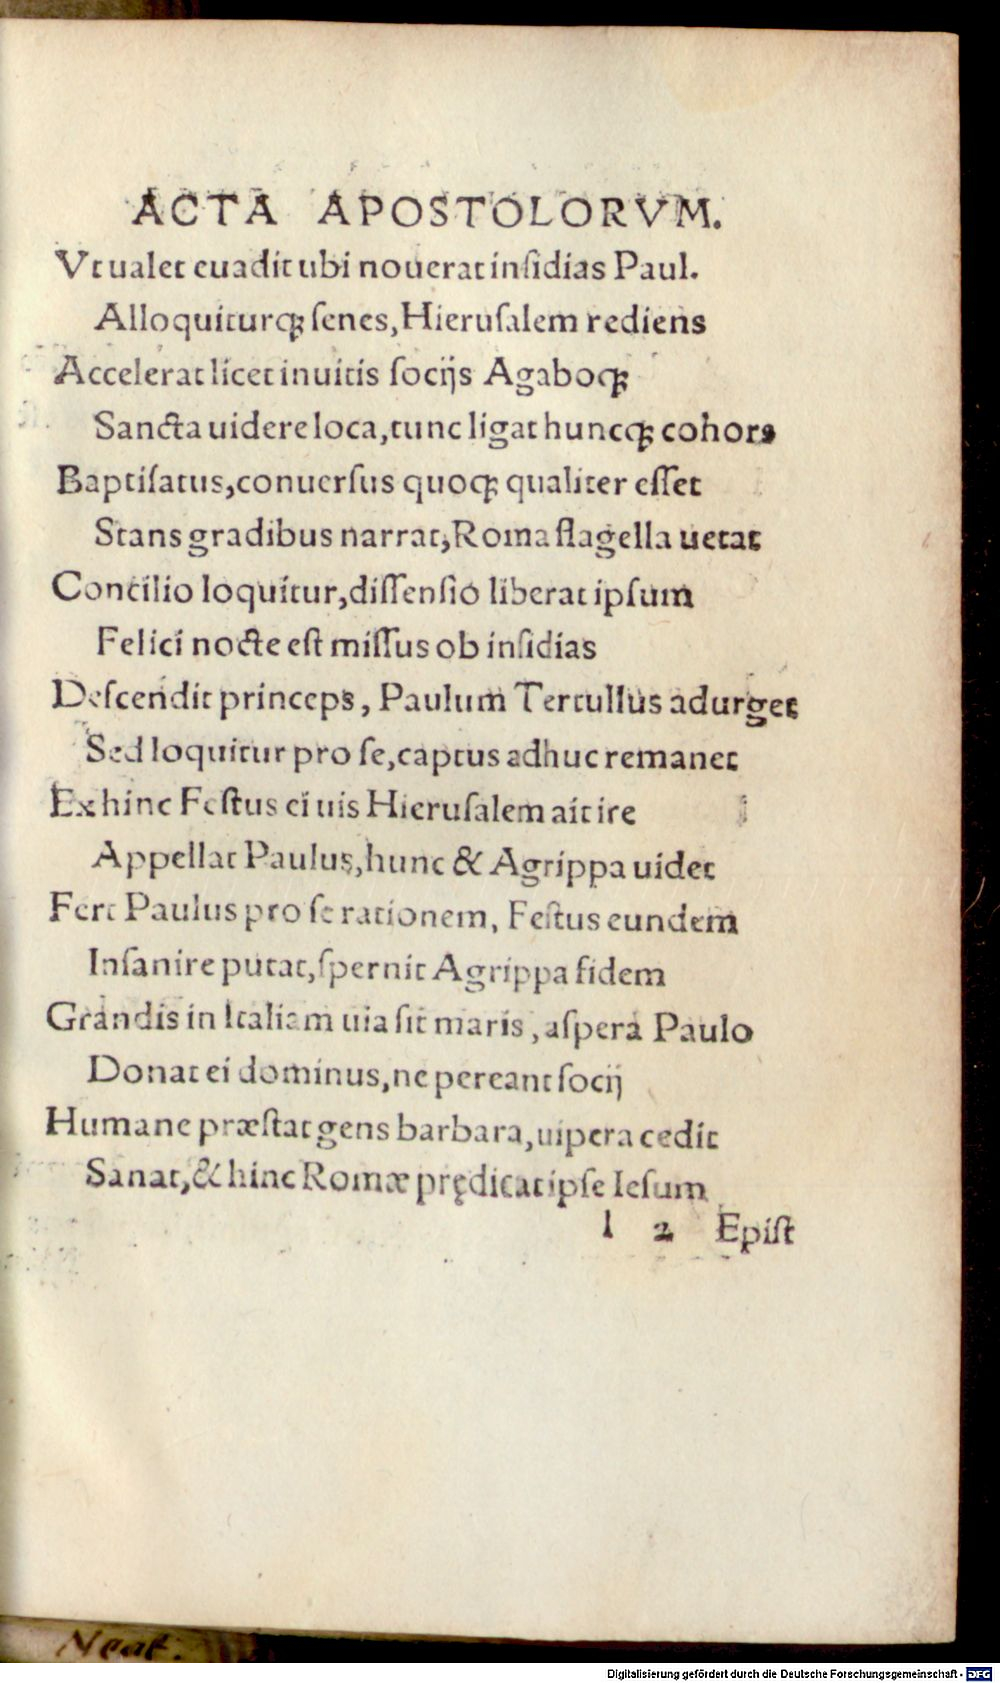 ACTA APOSTOLORVM.
Vt ualet euadit ubi nouerat insidias Paul.
Alloquiturq; senes, Hierusalem rediens
Accelerat licet inuitis socijs Agaboq;
Sancta uidere loca, tunc ligat huncq; cohors
Baptisatus, conuersus quoq; qualiter esset
Stans gradibus narrat, Roma flagella uetat
Concilio loquitur, dissensio liberat ipsum
Felici nocte est missus ob insidias
Descendit princeps, Paulum Tertullus adurget
Sed loquitur pro se, captus adhuc remanet
Ex hinc Festus ei uis Hierusalem ait ire
Appellat Paulus, hunc & Agrippa uidet
Fert Paulus pro se rationem, Festus eundem
Insanire putat, spernit Agrippa fidem
Grandis in Italiam uia fit maris, aspera Paulo
Donat ei dominus, ne pereant socij
Humane præstat gens barbara, uipera cedit
Sanat, & hinc Romæ prędicat ipse Iesum
l 2 Epist
Neat.
Digitalisierung gefördert durch die Deutsche Forschungsgemeinschaft - DFG